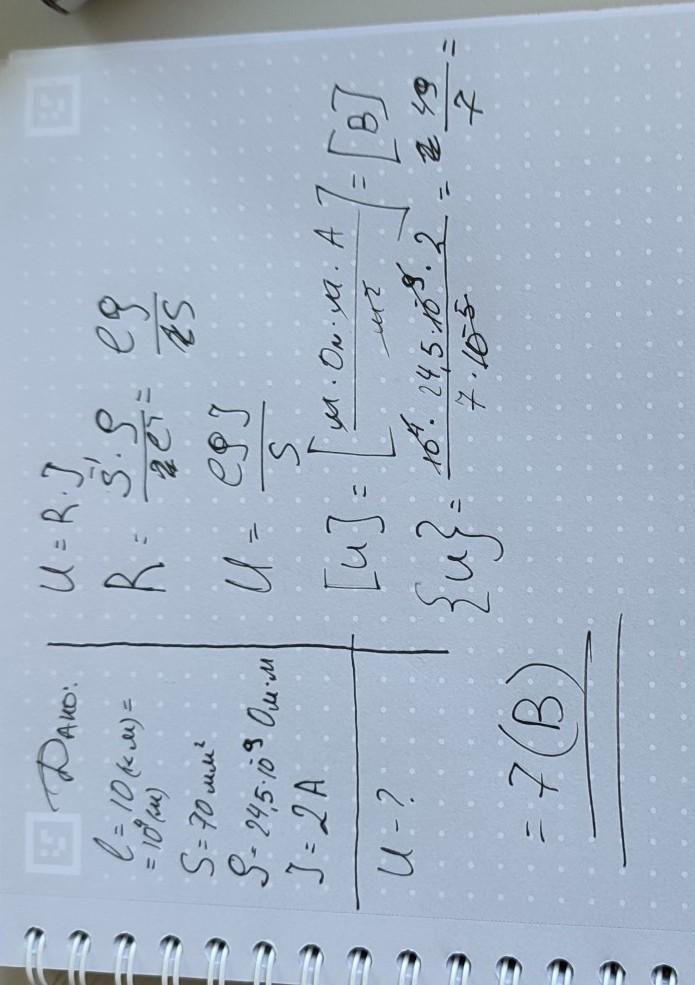 Дано:
l = 10 (км) =
= 10⁴ (м)
S = 70 мм²
ρ = 24,5·10⁻⁹ Ом·м
J = 2 А
U - ?
U = R·J
R = = lρ/S
U = lρJ/S
[U] = [м·Ом·м·А/м²] = [В]
{U} = 10⁴·24,5·10⁻⁹·2/7·10⁻⁵ = 49/7 =
= 7 (В)